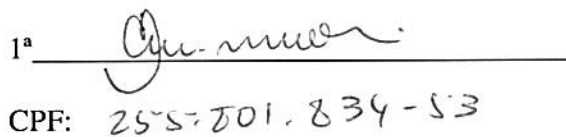 1ª
CPF: 255.801.834-53